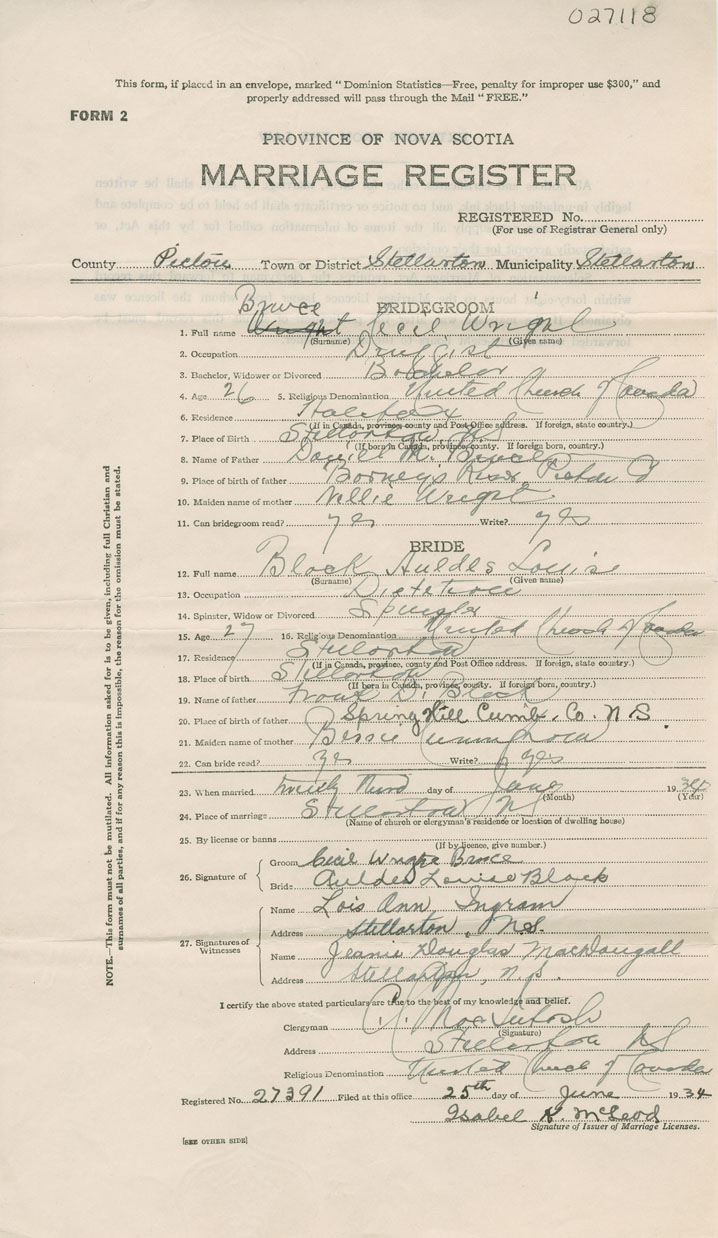 027118
This form, if placed in an envelope, marked "Dominion Statistics—Free, penalty for improper use $300," and
properly addressed will pass through the Mail "FREE."
FORM 2
PROVINCE OF NOVA SCOTIA
MARRIAGE REGISTER
REGISTERED No.
(For use of Registrar General only)
County Pictou Town or District Stellarton Municipality Stellarton
BRIDEGROOM
Bruce
1. Full name Wright Cecil Wright
(Surname) (Given name)
2. Occupation Druggist
3. Bachelor, Widower or Divorced Bachelor
4. Age 26 5. Religious Denomination United Church of Canada
6. Residence Halifax
(If in Canada, province, county and Post Office address. If foreign, state country.)
7. Place of Birth Stellarton, N.S.
(If born in Canada, province, county. If foreign born, country.)
8. Name of Father Daniel M. Bruce
9. Place of birth of father Barney's River, Pictou
10. Maiden name of mother Nellie Wright
11. Can bridegroom read? yes Write? yes
BRIDE
12. Full name Black Auldes Louise
(Surname) (Given name)
13. Occupation Dietetion
14. Spinster, Widow or Divorced Spinster
15. Age 27 16. Religious Denomination United Church of Canada
17. Residence Stellarton
(If in Canada, province, county and Post Office address. If foreign, state country.)
18. Place of birth Stellarton
(If born in Canada, province, county. If foreign born, country.)
19. Name of father Frank D. Black
20. Place of birth of father Spring Hill Cumb. Co. N.S.
21. Maiden name of mother Bessie
22. Can bride read? yes Write? yes
23. When married Twenty Third day of June 1934
(Month) (Year)
24. Place of marriage Stellarton N.S.
(Name of church or clergyman's residence or location of dwelling house)
25. By license or banns
(If by licence, give number.)
26. Signature of
Groom Cecil Wright Bruce
Bride Auldes Louise Black
27. Signatures of Witnesses
Name Lois Ann Ingram
Address Stellarton, N.S.
Name Jeanie Douglas MacDougall
Address Stellarton, N.S.
I certify the above stated particulars are true to the best of my knowledge and belief.
Clergyman MacIntosh
(Signature)
Address Stellarton NS
Religious Denomination United Church of Canada
Registered No. 27391 Filed at this office 25th day of June 1934
Isabel K. McLeod
Signature of Issuer of Marriage Licenses.
[SEE OTHER SIDE]
NOTE.—This form must not be mutilated. All information asked for is to be given, including full Christian and
surnames of all parties, and if for any reason this is impossible, the reason for the omission must be stated.